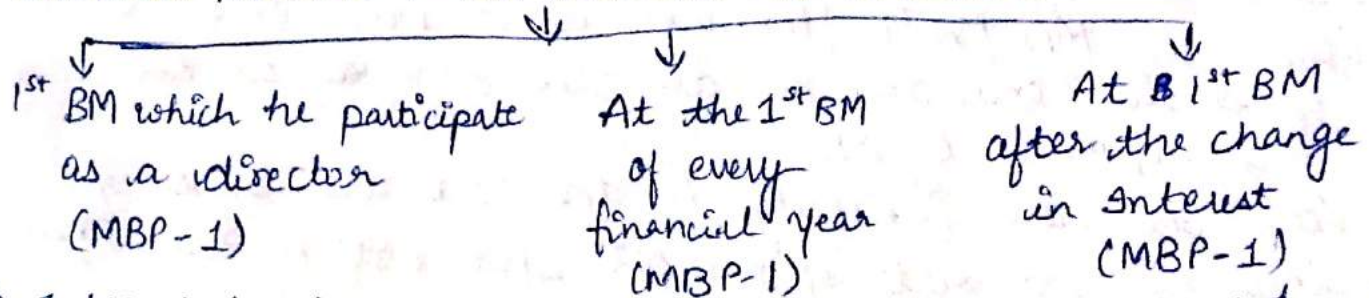 1st BM which he participate
as a director
(MBP-1)
At the 1st BM
of every
financial year
(MBP-1)
At 1st BM
after the change
in Interest
(MBP-1)